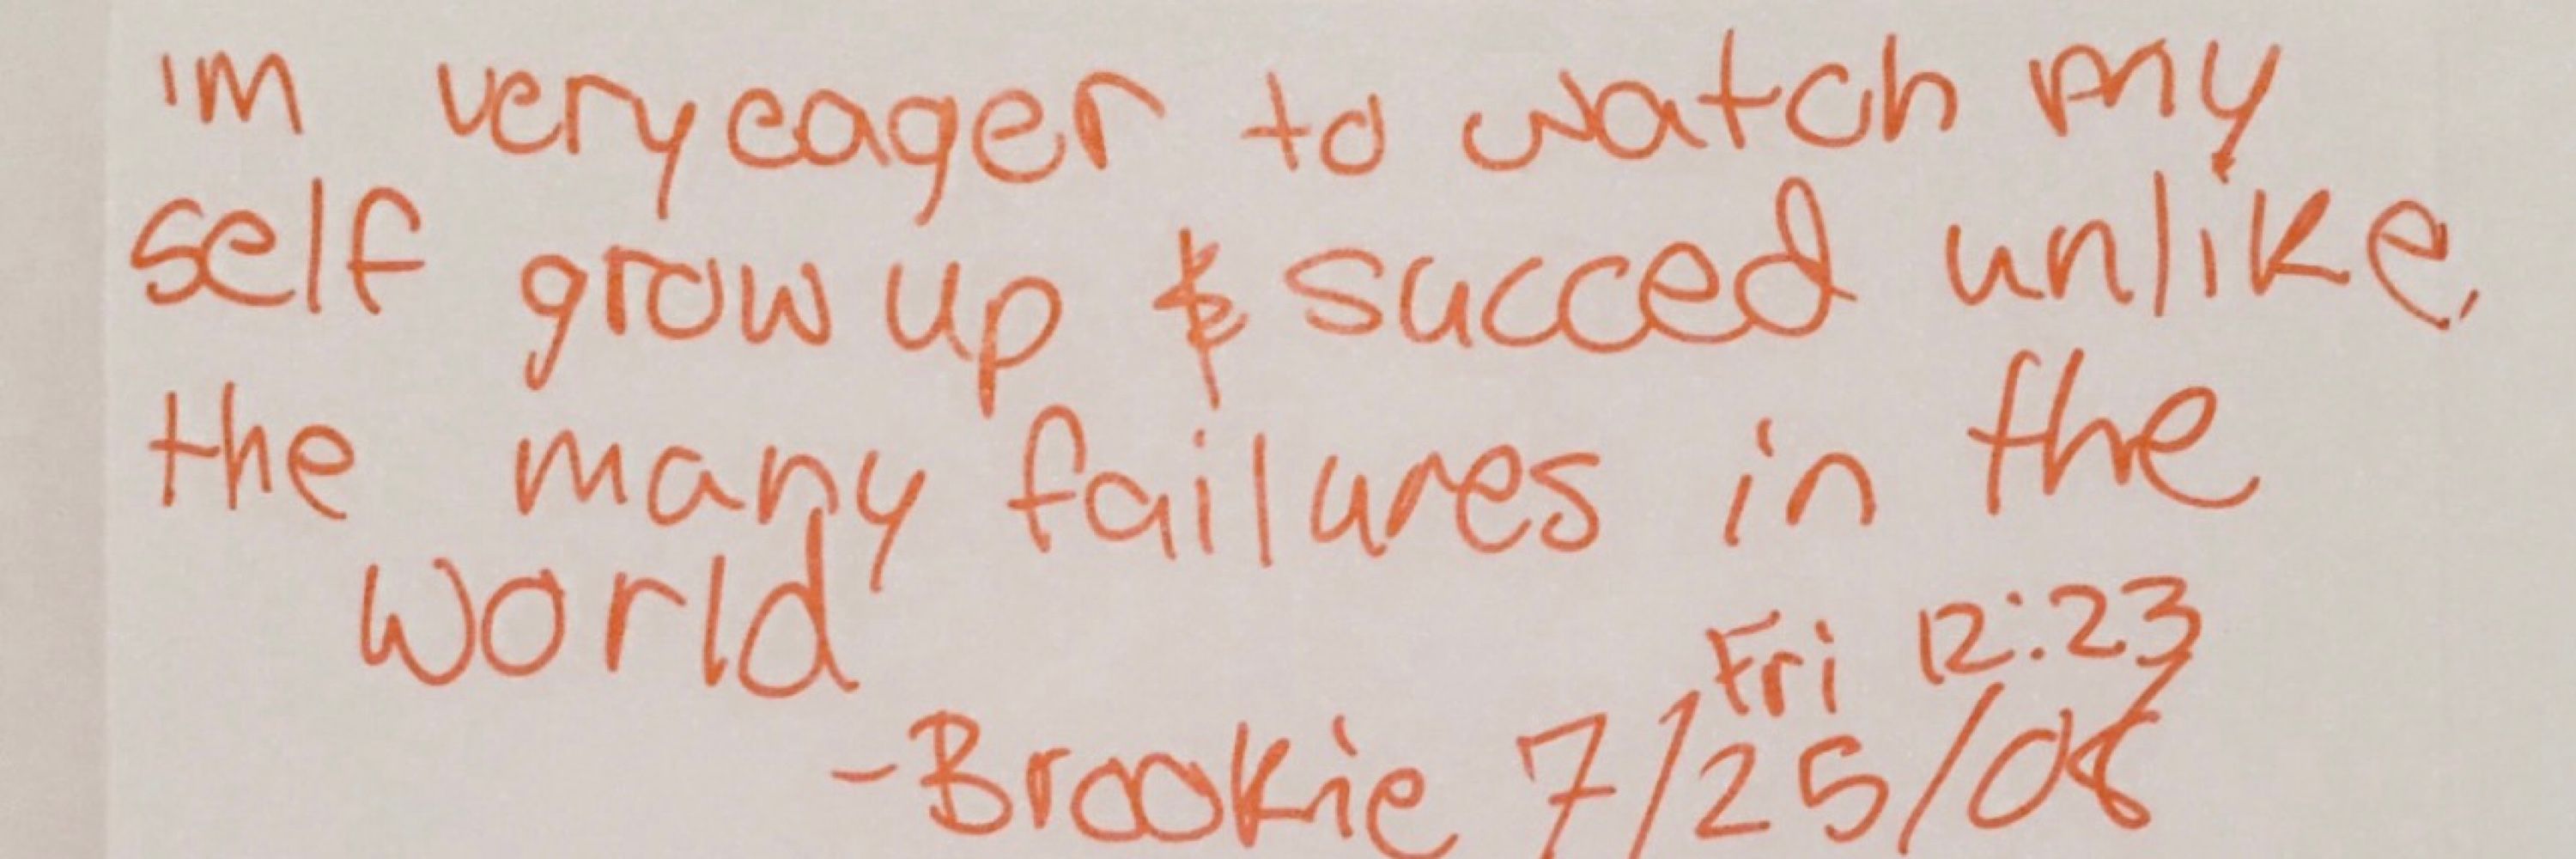 im very eager to watch my
self grow up & succed unlike
the many failures in the
world
Fri 12:23
-Brookie 7/25/08